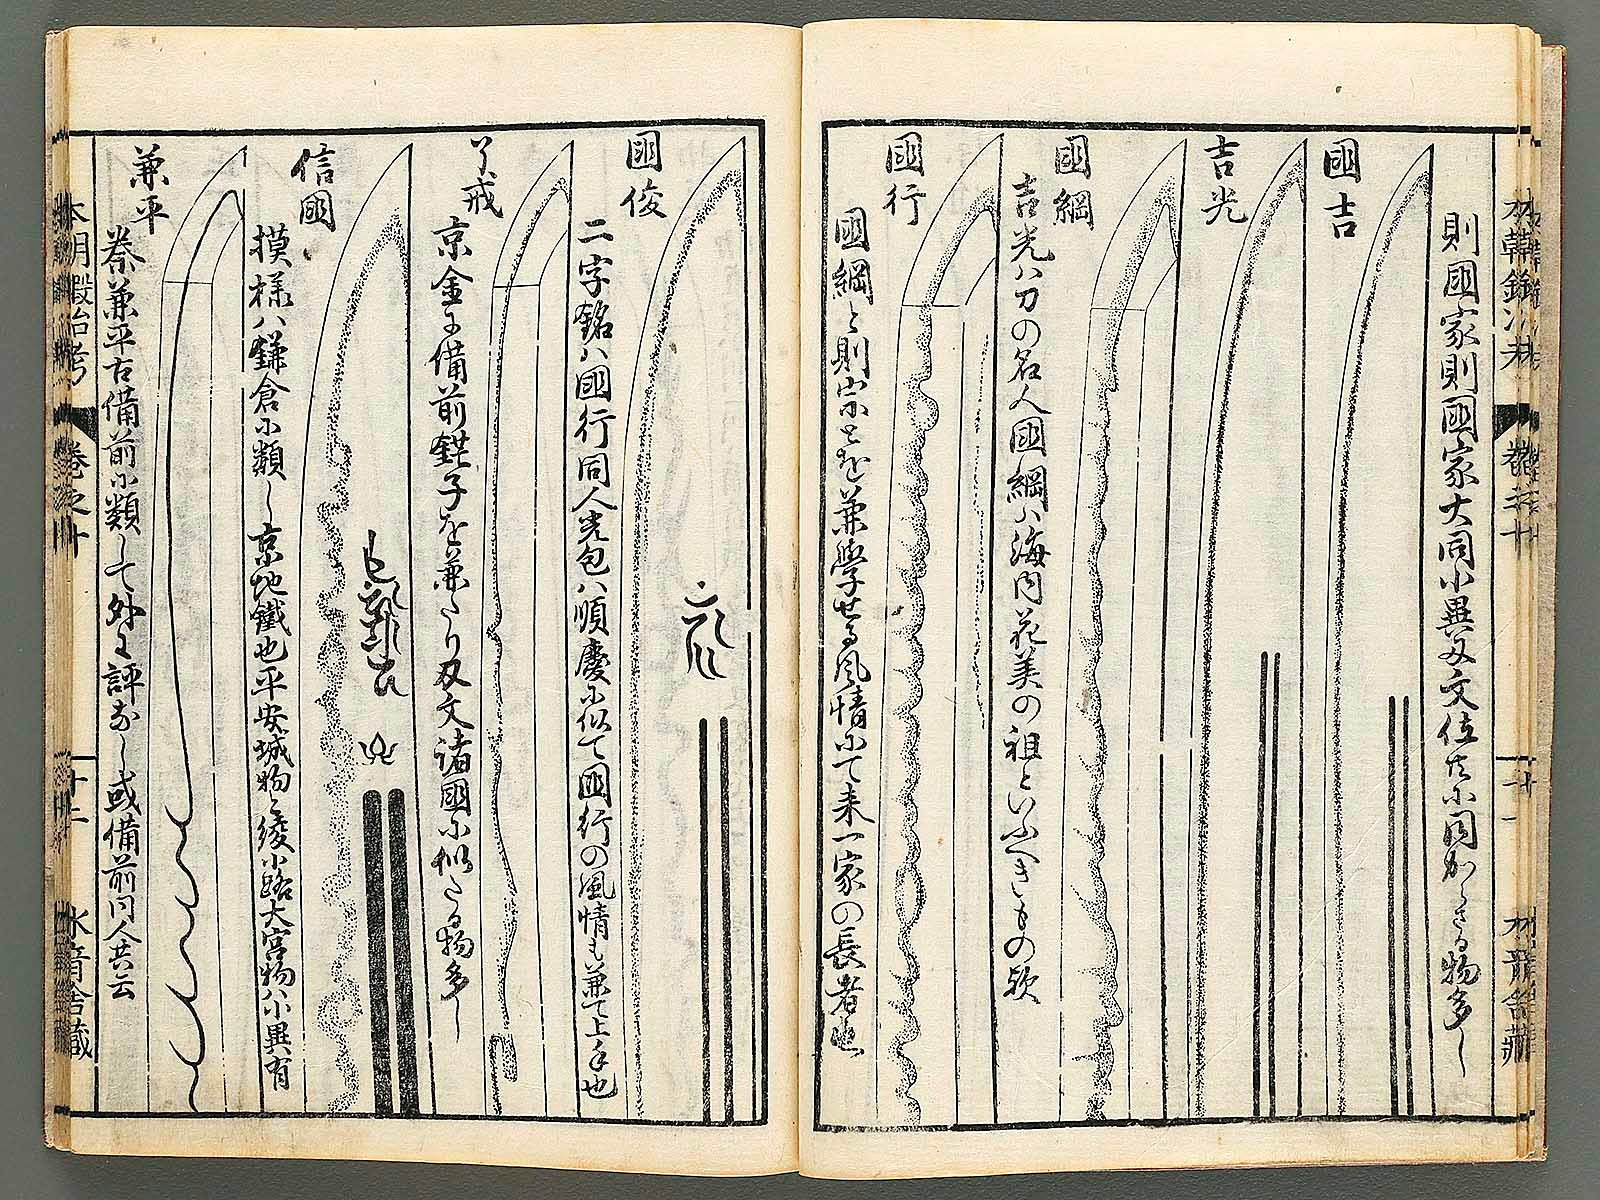 則國家則國家大同小異多文位共小同かゝさる物多し
國吉
吉光
吉光ハ刀の名人國綱ハ海内花美の祖といふへきもの欤
國綱
國行
國綱と則宗とを兼学せる風情にて来一家の長者也
國俊
二字銘ハ國行同人光包ハ順慶に似て國行の風情も兼て上手也
了戒
京金に備前錵子を兼たり刃文諸國に似たる物多し
信國
摸様ハ鎌倉に類し京地鐵也平安城物と綾小路大宮物ハ小異有
兼平
秦兼平古備前に類して外に評なし或備前同人共云
本朝鍛冶考 巻之十 十二 水育舎蔵